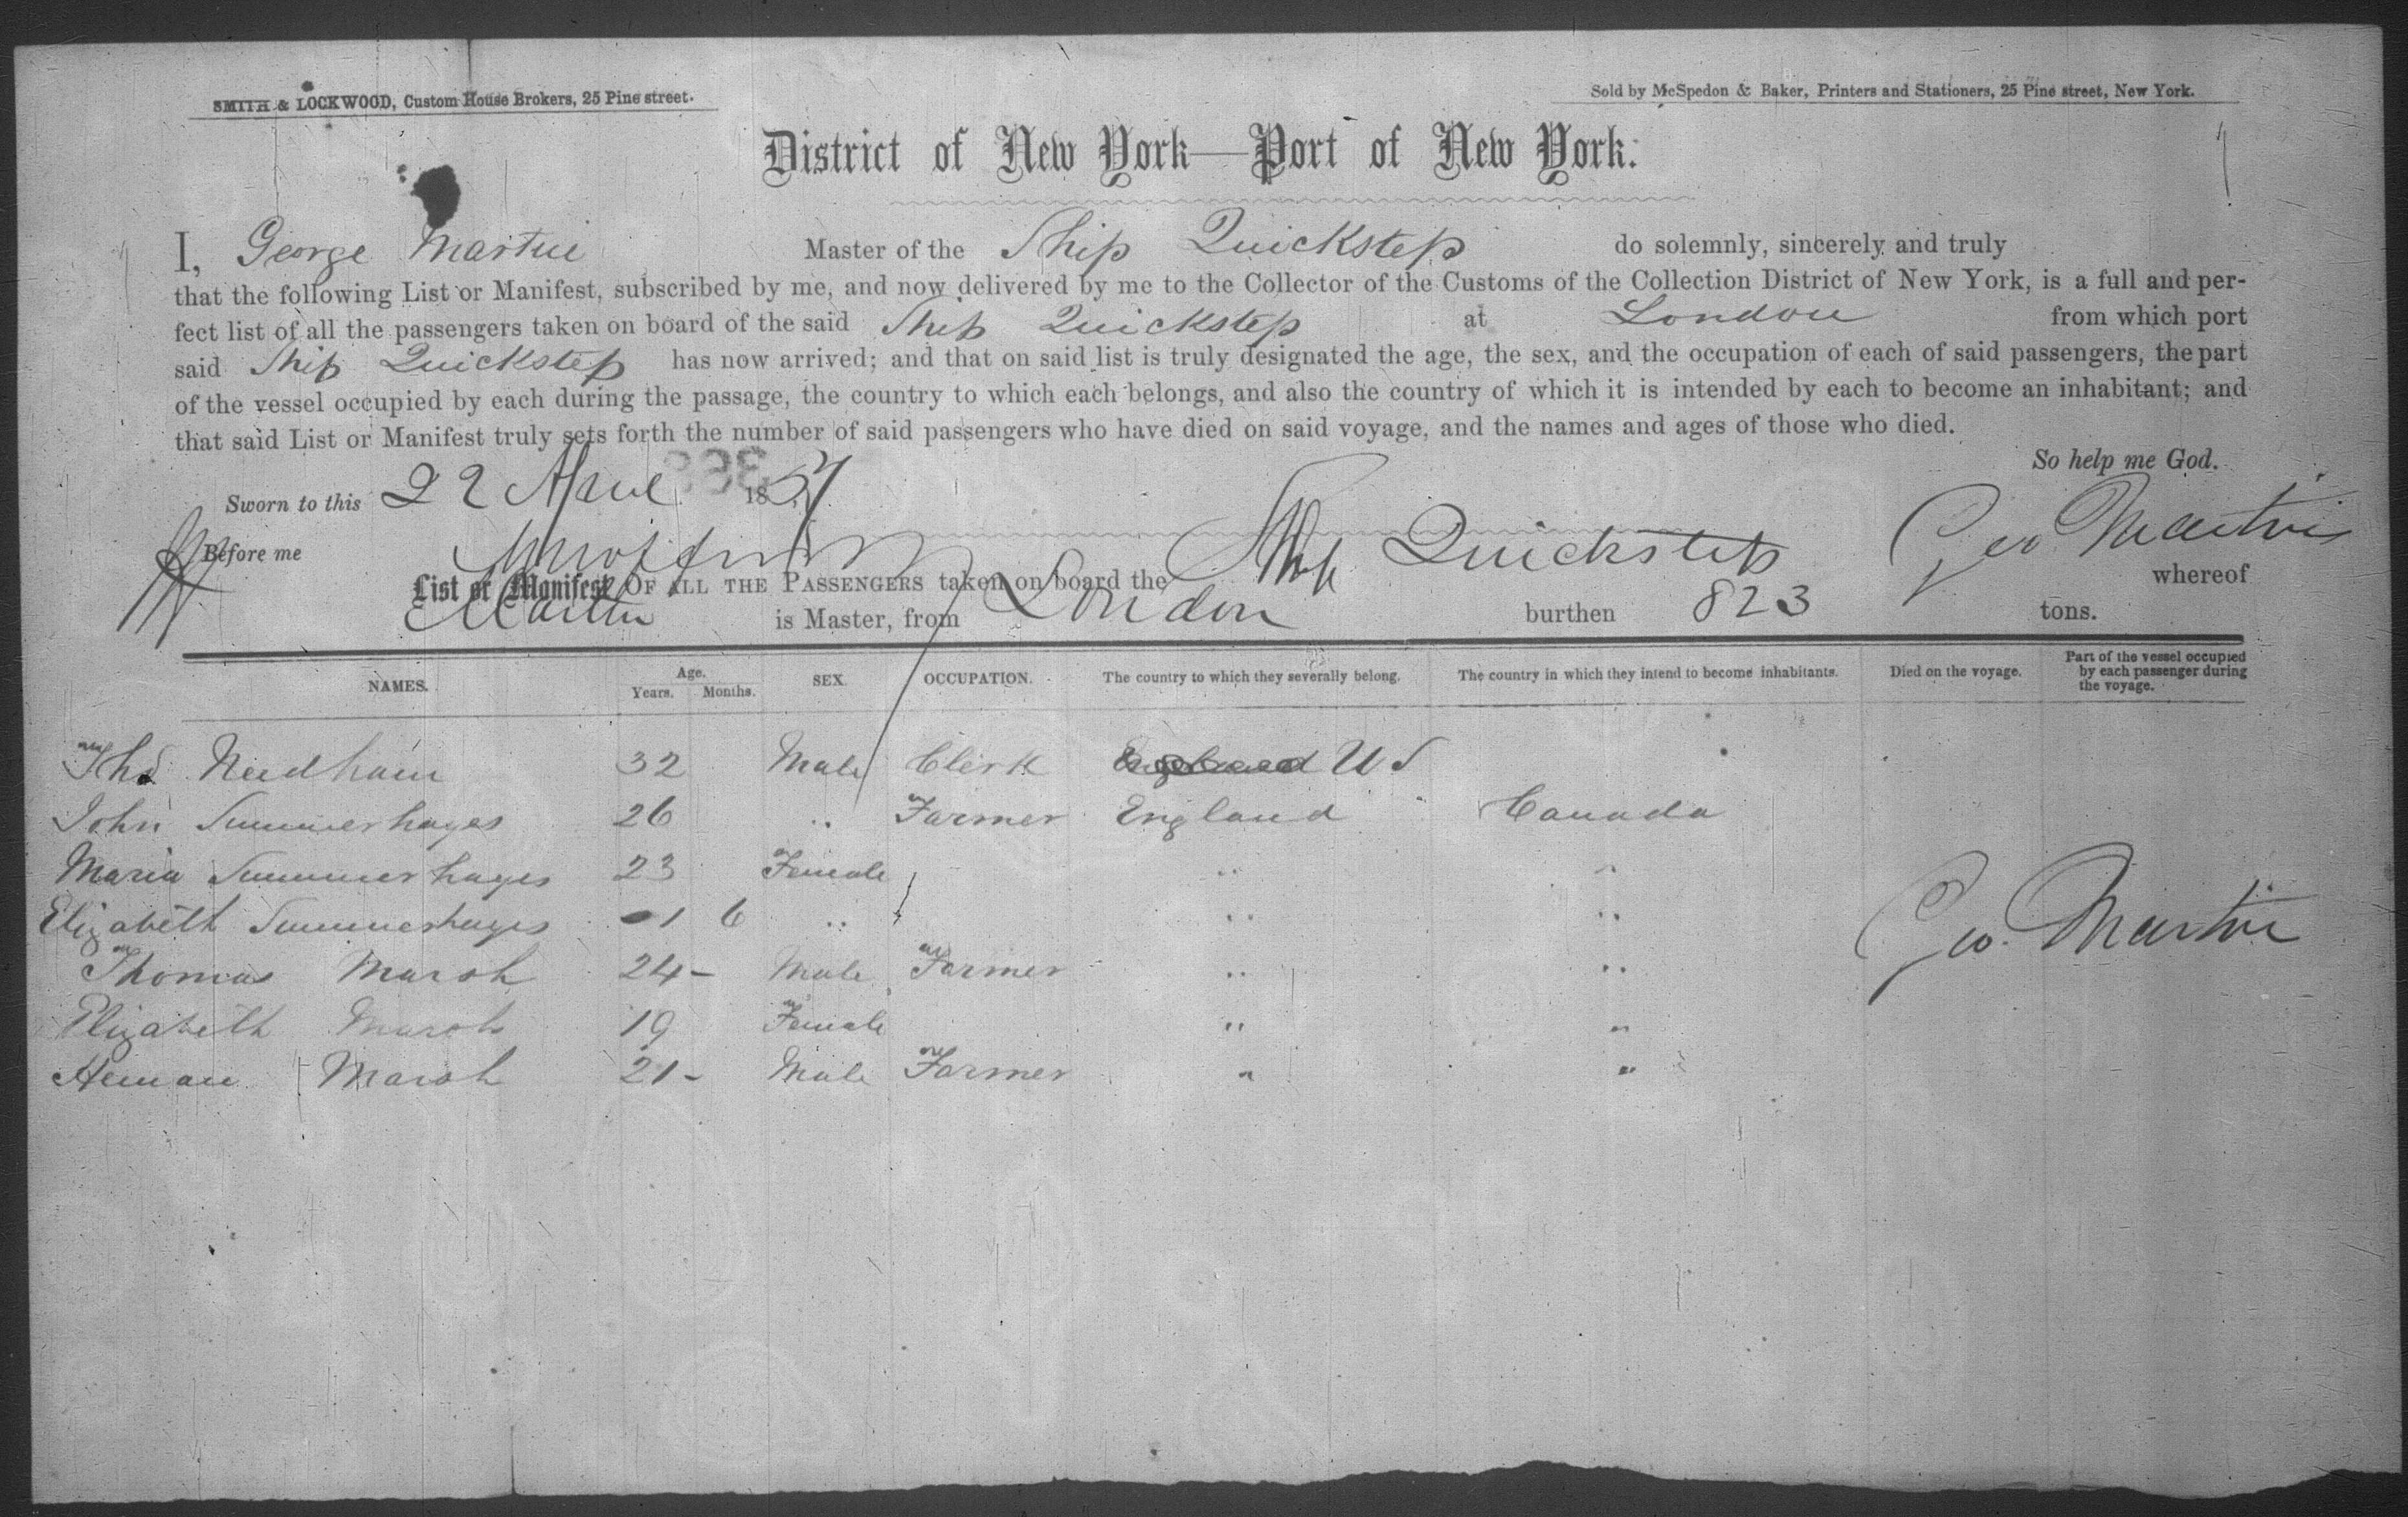 SMITH & LOCKWOOD, Custom House Brokers, 25 Pine street.
Sold by McSpedon & Baker, Printers and Stationers, 25 Pine street, New York.
District of New York—Port of New York.
I, George Martin Master of the Ship Quickstep do solemnly, sincerely and truly
that the following List or Manifest, subscribed by me, and now delivered by me to the Collector of the Customs of the Collection District of New York, is a full and per-
fect list of all the passengers taken on board of the said Ship Quickstep at London from which port
said Ship Quickstep has now arrived; and that on said list is truly designated the age, the sex, and the occupation of each of said passengers, the part
of the vessel occupied by each during the passage, the country to which each belongs, and also the country of which it is intended by each to become an inhabitant; and
that said List or Manifest truly sets forth the number of said passengers who have died on said voyage, and the names and ages of those who died.
So help me God.
Sworn to this 22 April 1857
Before me
Geo Martin
List or Manifest OF ALL THE PASSENGERS taken on board the Ship Quickstep whereof
Martin is Master, from London burthen 823 tons.
NAMES. Age. Years. Months. SEX. OCCUPATION. The country to which they severally belong. The country in which they intend to become inhabitants. Died on the voyage. Part of the vessel occupied by each passenger during the voyage.
Thos Needham 32 Male Clerk England U S
John Summerhayes 26 " Farmer England Canada
Maria Summerhayes 23 Female " "
Elizabeth Summerhayes 1 6 " " "
Thomas Marsh 24 - Male Farmer " "
Elizabeth Marsh 19 Female " "
Heman Marsh 21 - Male Farmer " "
Geo. Martin